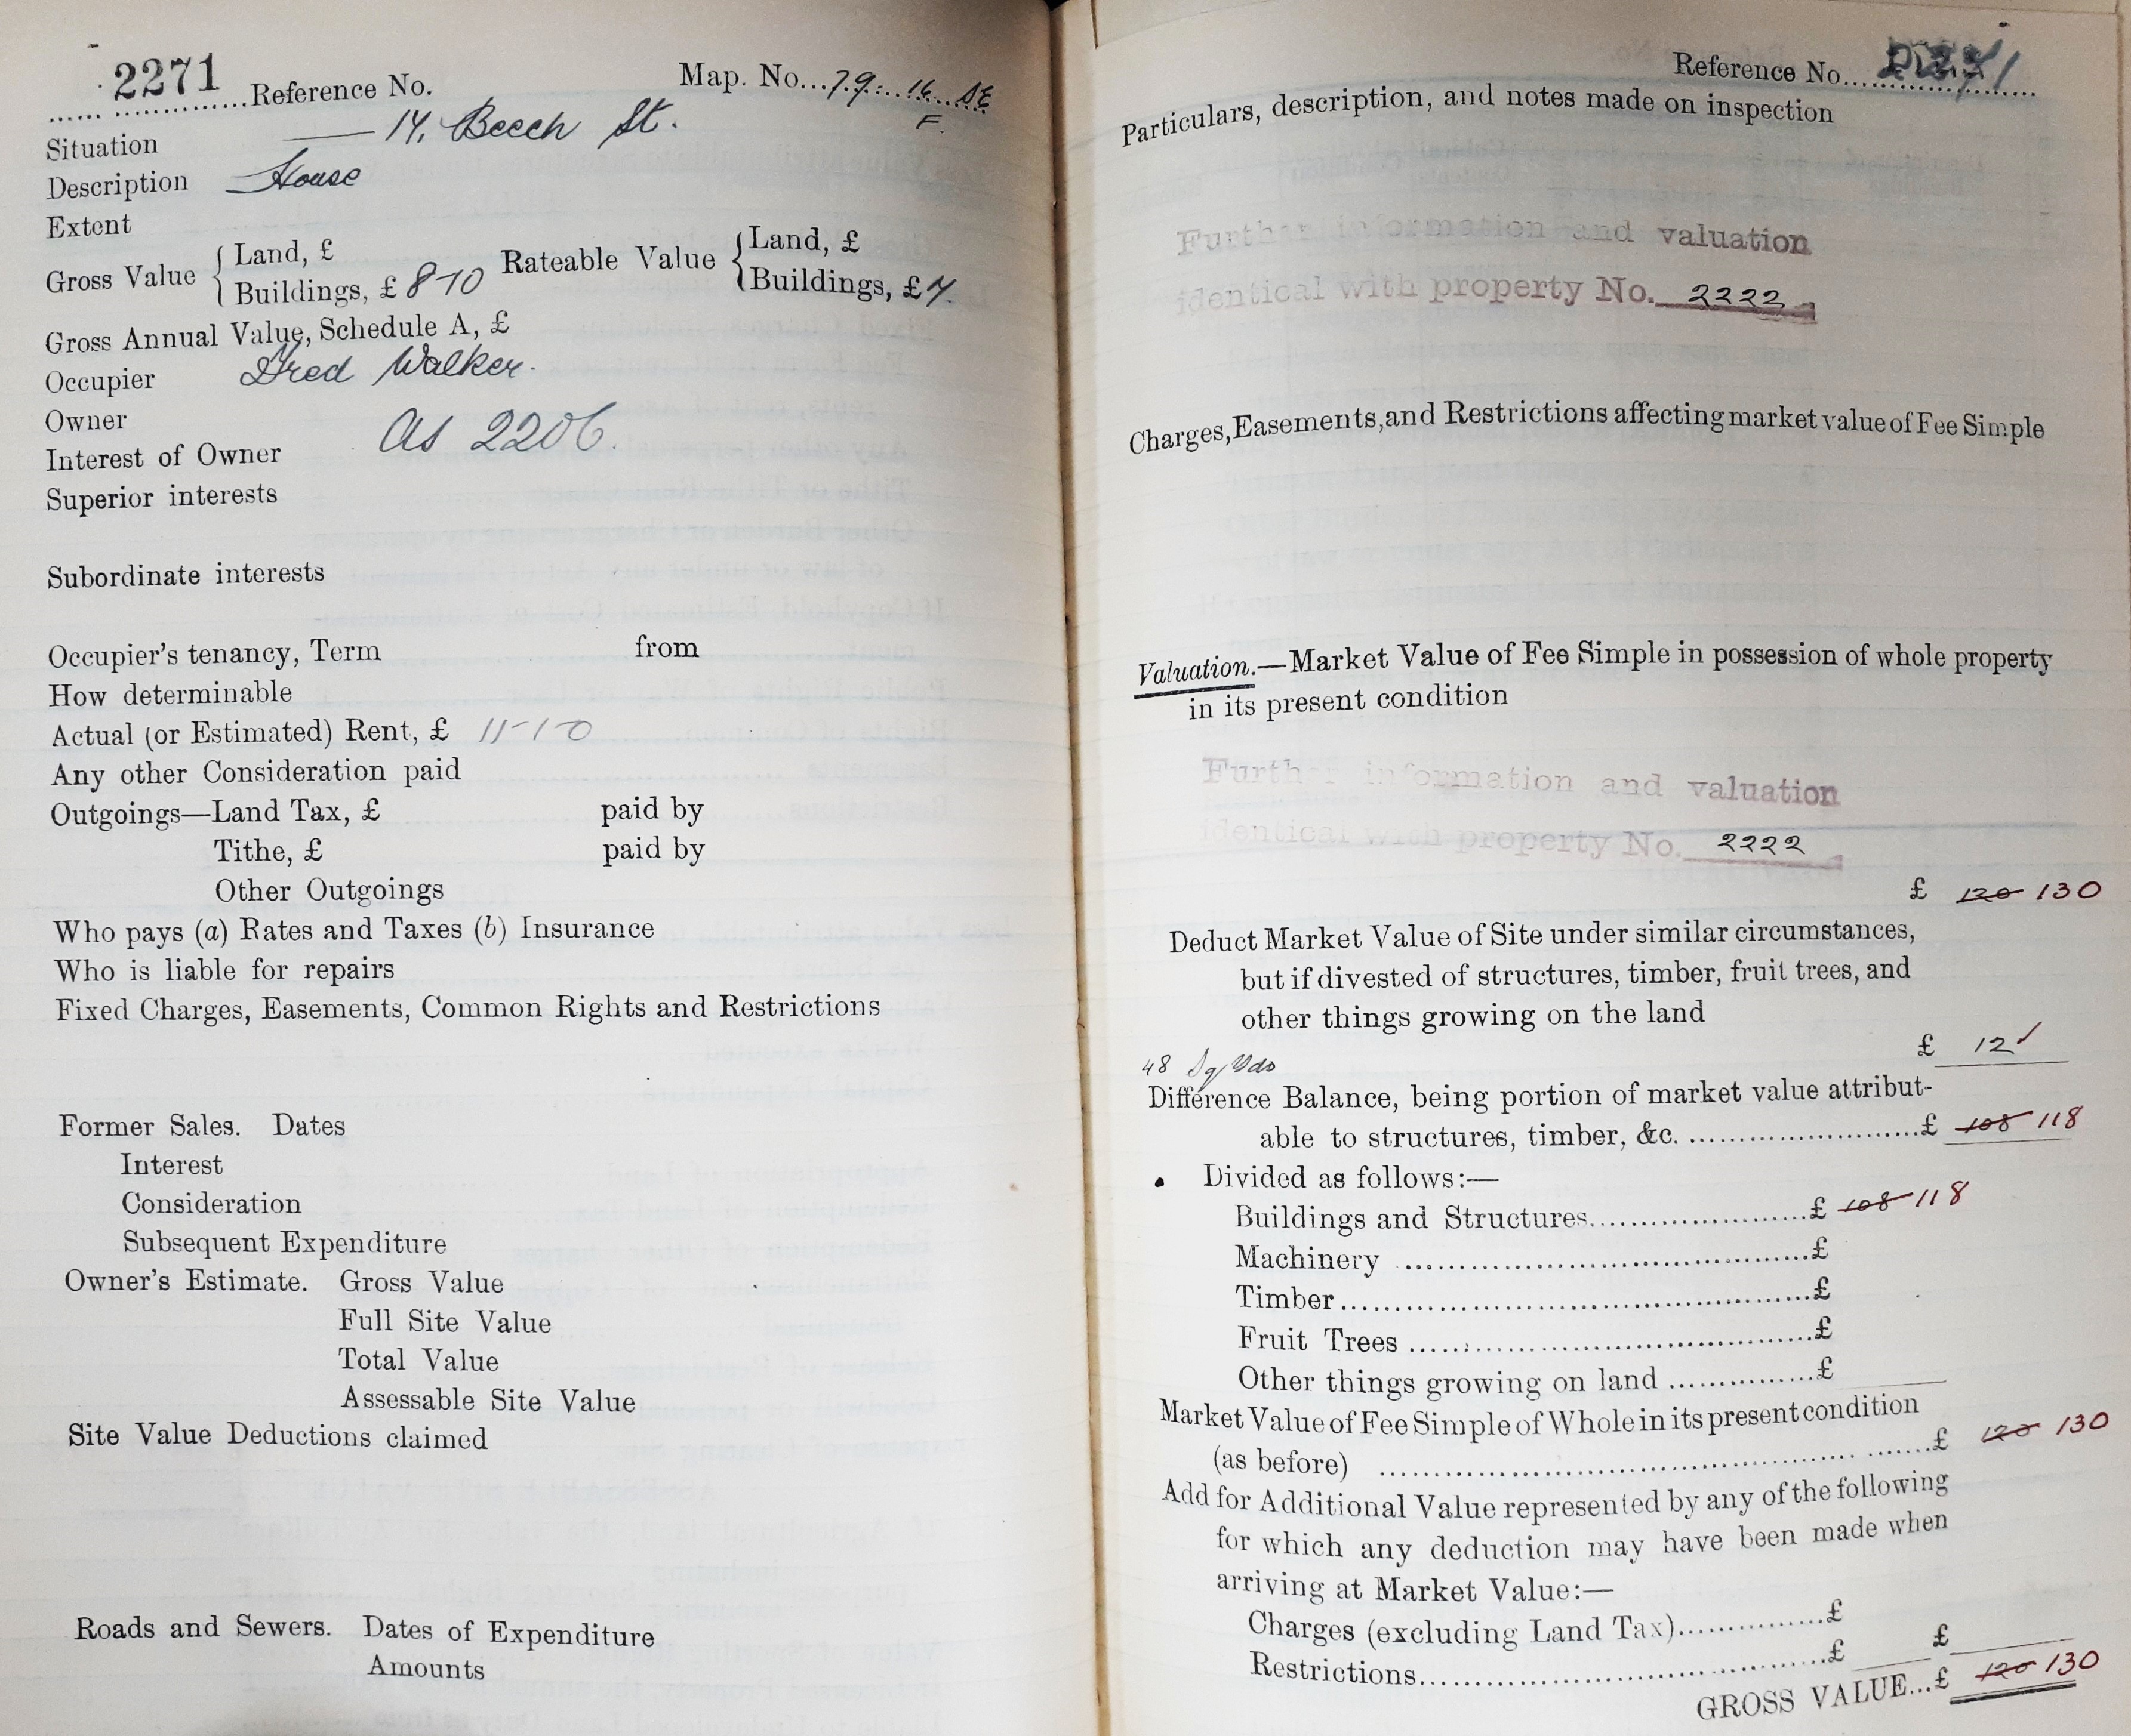 2271 Reference No. Map. No. 79. 16. SE
F.
Situation 14, Beech St.
Description House
Extent
Gross Value { Land, £ Rateable Value { Land, £
Buildings, £ 8-10 Buildings, £ 7.
Gross Annual Value, Schedule A, £
Occupier Fred Walker.
Owner
as 2206.
Interest of Owner
Superior interests
Subordinate interests
Occupier's tenancy, Term from
How determinable
Actual (or Estimated) Rent, £ 11-1-0
Any other Consideration paid
Outgoings—Land Tax, £ paid by
Tithe, £ paid by
Other Outgoings
Who pays (a) Rates and Taxes (b) Insurance
Who is liable for repairs
Fixed Charges, Easements, Common Rights and Restrictions
Former Sales. Dates
Interest
Consideration
Subsequent Expenditure
Owner's Estimate. Gross Value
Full Site Value
Total Value
Assessable Site Value
Site Value Deductions claimed
Roads and Sewers. Dates of Expenditure
Amounts
Reference No.
Particulars, description, and notes made on inspection
Further information and valuation
identical with property No. 2222
Charges, Easements, and Restrictions affecting market value of Fee Simple
Valuation.—Market Value of Fee Simple in possession of whole property
in its present condition
Further information and valuation
identical with property No. 2222
£ 120 130
Deduct Market Value of Site under similar circumstances,
but if divested of structures, timber, fruit trees, and
other things growing on the land
£ 12 ✓
48 Sq Yds
Difference Balance, being portion of market value attribut-
able to structures, timber, &c. £ 108 118
Divided as follows:—
Buildings and Structures £ 108 118
Machinery £
Timber £
Fruit Trees £
Other things growing on land £
Market Value of Fee Simple of Whole in its present condition
(as before) £ 120 130
Add for Additional Value represented by any of the following
for which any deduction may have been made when
arriving at Market Value:—
Charges (excluding Land Tax) £
Restrictions £ £
GROSS VALUE...£ 120 130